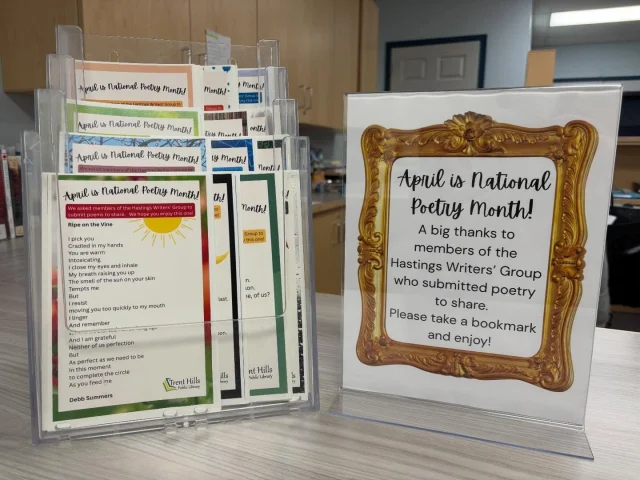 April is National Poetry Month!
April is National Poetry Month!
April is National Poetry Month!
April is National Poetry Month!
We asked members of the Hastings Writers' Group to
submit poems to share. We hope you enjoy this one!
Ripe on the Vine
I pick you
Cradled in my hands
You are warm
Intoxicating
I close my eyes and inhale
My breath raising you up
The smell of the sun on your skin
Tempts me
But
I resist
moving you too quickly to my mouth
I linger
And remember
And I am grateful
Neither of us perfection
But
As perfect as we need to be
In this moment
to complete the circle
As you feed me
Debb Summers
Trent Hills
Public Library
Month!
Group to
this one!
last,
Hills
Library
Month!
Group to
this one!
n.
e, of us?
Trent Hills
Public Library
April is National
Poetry Month!
A big thanks to
members of the
Hastings Writers' Group
who submitted poetry
to share.
Please take a bookmark
and enjoy!